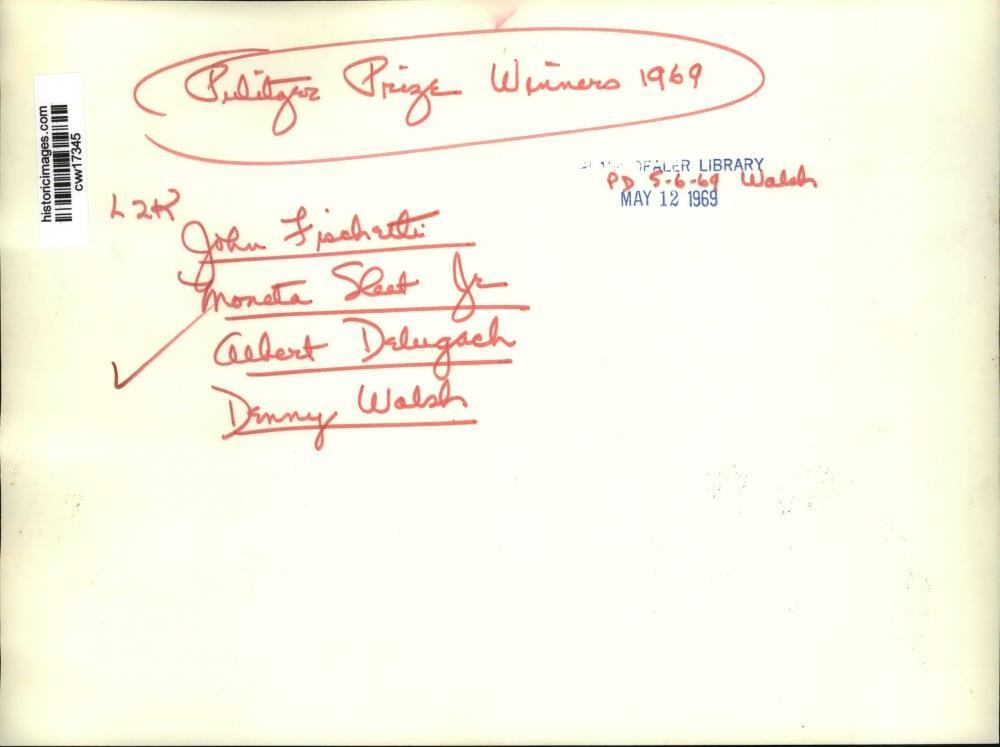 Pulitzer Prize Winners 1969
historicimages.com
cvw17345
DEALER LIBRARY
PD 5-6-69 Walsh
MAY 12 1969
L2R
John Fischetti
Moneta Sleet Jr
Albert Delugach
Denny Walsh